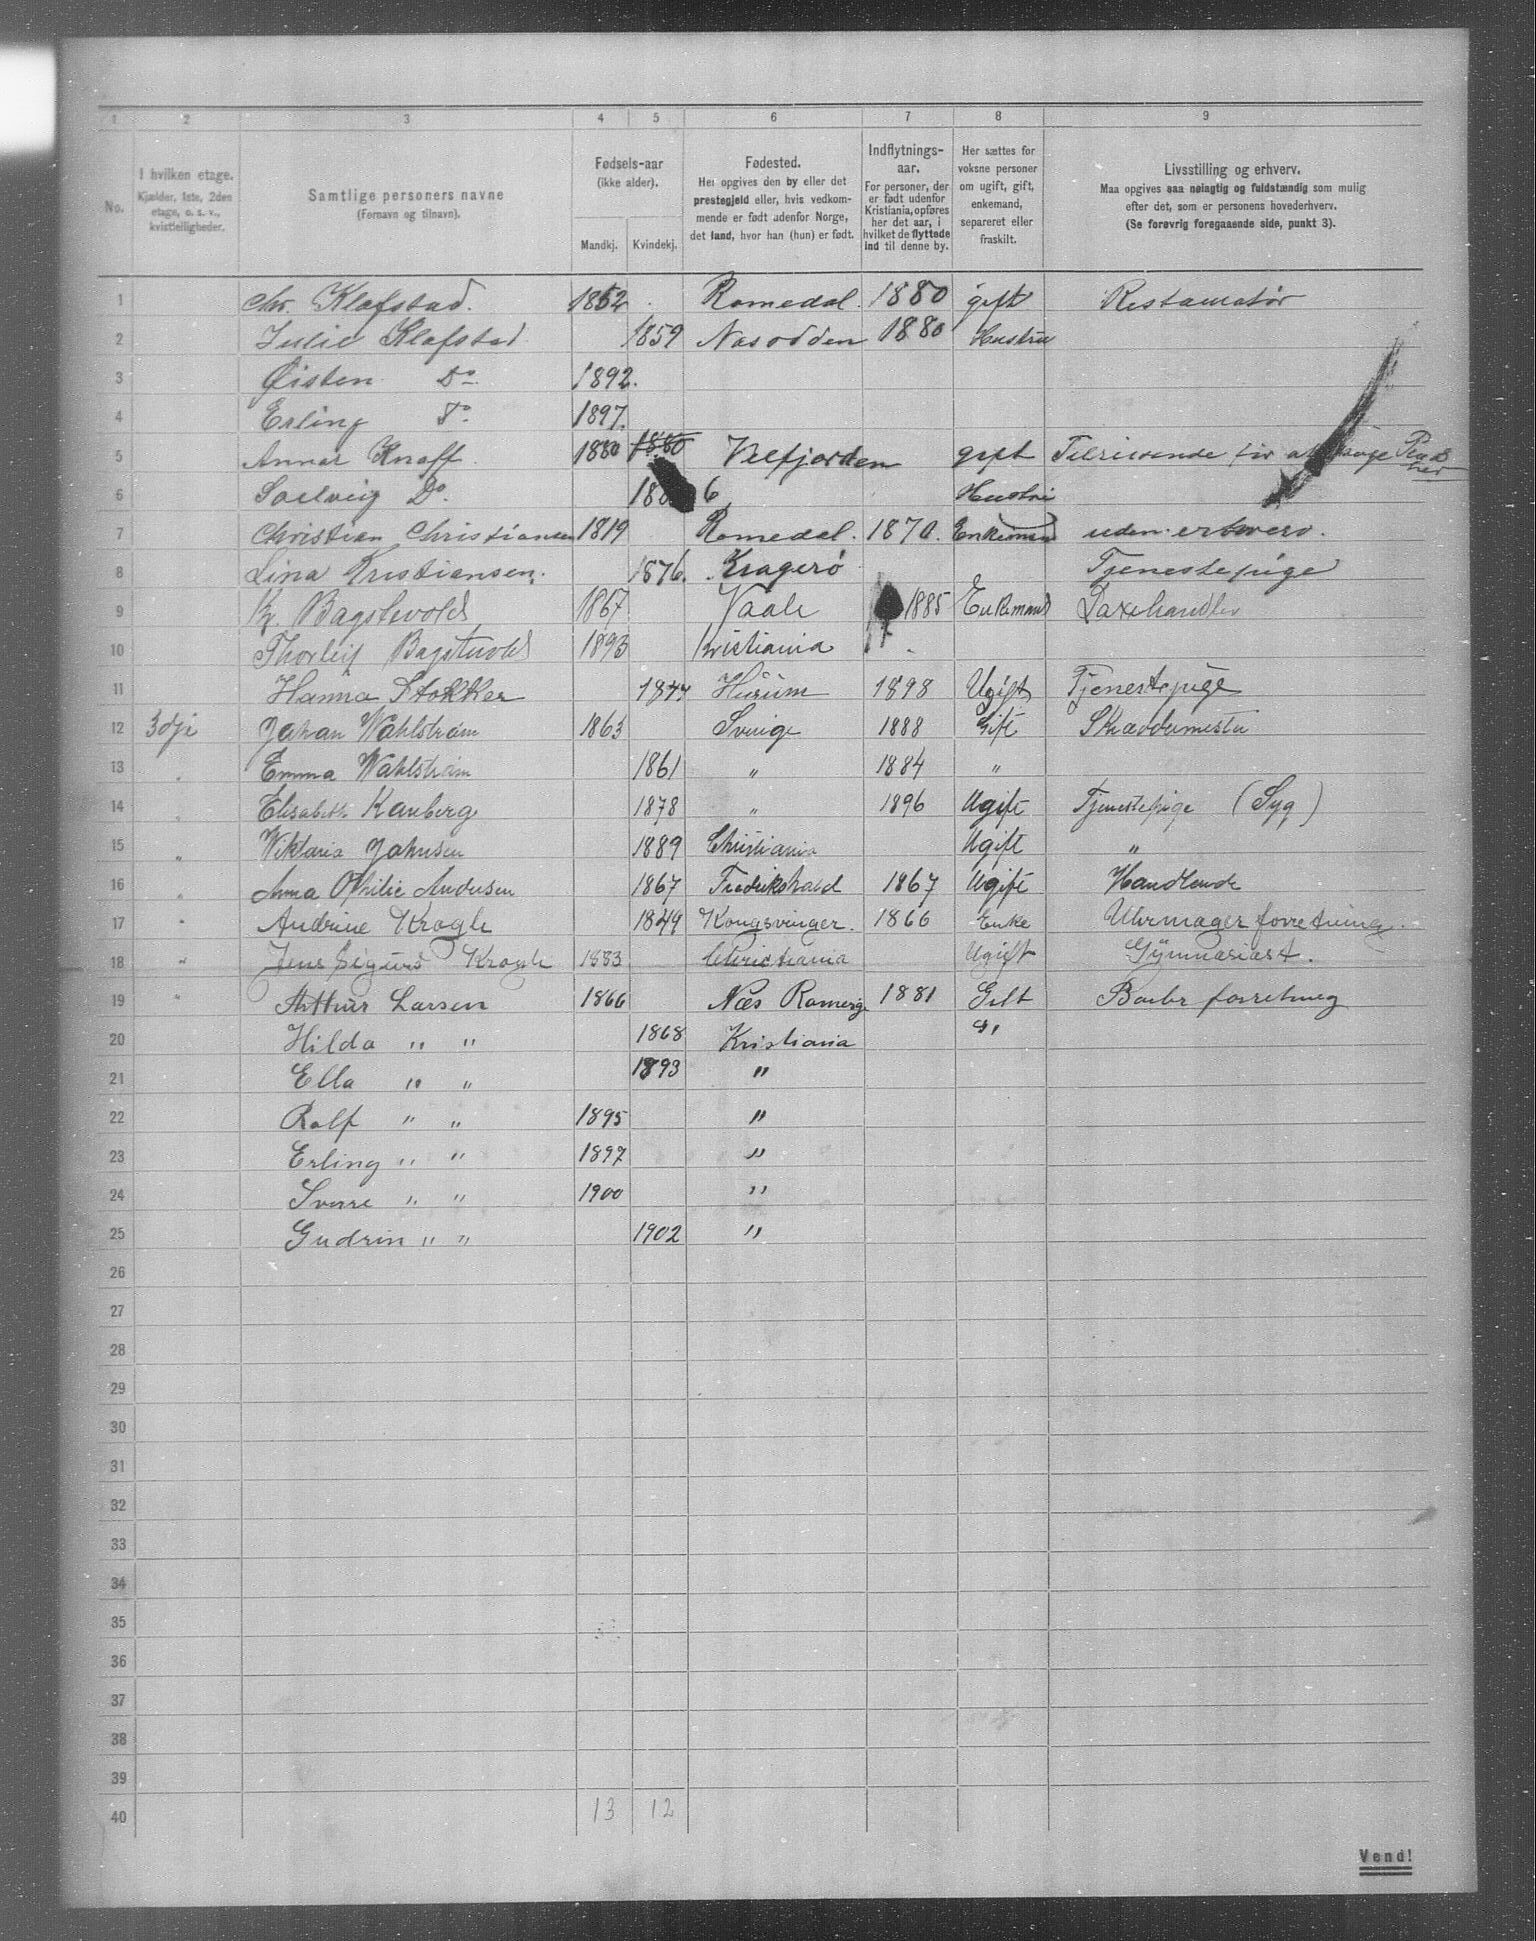 1 2 3 4 5 6 7 8 9
No. I hvilken etage. Kjælder, 1ste, 2den etage, o. s. v., kvistleiligheder. Samtlige personers navne (Fornavn og tilnavn). Fødsels-aar (ikke alder). Mandkj. Kvindekj. Fødested. Her opgives den by eller det prestegjeld eller, hvis vedkommende er født udenfor Norge, det land, hvor han (hun) er født. Indflytnings-aar. For personer, der er født udenfor Kristiania, opføres her det aar, i hvilket de flyttede ind til denne by. Her sættes for voksne personer om ugift, gift, enkemand, separeret eller fraskilt. Livsstilling og erhverv. Maa opgives saa nøiagtig og fuldstændig som mulig efter det, som er personens hovederhverv. (Se forøvrig foregaaende side, punkt 3).
1 Chr. Klafstad. 1852 Romedal. 1880 gift Restauratør
2 Julie Klafstad 1859 Nasodden 1880 Hustru
3 Øisten Do. 1892.
4 Erling Do 1897.
5 Annar Knoff 1880 1880 Velfjorden gift Tilreisende for
6 Soelveig Do. 6 Hustru
7 Christian Christiansen 1819 Romedal. 1870. Enkemand uden erhverv.
8 Lina Kristiansen. 1876. Kragerø Tjenestepige
9 Bagstevold 1867 Vaale 1885 Enkemand
10 Thorleif Bagstevold 1893 Kristiania
11 Hanna Stokker 1877 Hurum 1898 Ugift Tjenestepige
12 3dje Johan Wahlstrøm 1863 Sverige 1888 Gift Skræddermester
13 " Emma Wahlstrøm 1861 " 1884 "
14 " Elisabeth Karlberg 1878 " 1896 Ugift Tjenestepige (Syg)
15 " Viktoria Johnsen 1889 Christiania Ugift "
16 " Anna Othilie Andersen 1867 Fredrikshald 1867 Ugift Handlende
17 " Andrine Krogh 1849 Kongsvinger. 1866 Enke Uhrmagerforretning.
18 " Jens Sigurd Krogh 1883 Christiania Ugift Gymnasiast.
19 " Arthur Larsen 1866 Næs Romerige 1881 Gift Barber forretning
20 Hilda " " 1868 Kristiania "
21 Ella " " 1893 "
22 Rolf " " 1895 "
23 Erling " " 1897 "
24 Sverre " " 1900 "
25 Gudrin " " 1902 "
26
27
28
29
30
31
32
33
34
35
36
37
38
39
40 13 12
Vend!